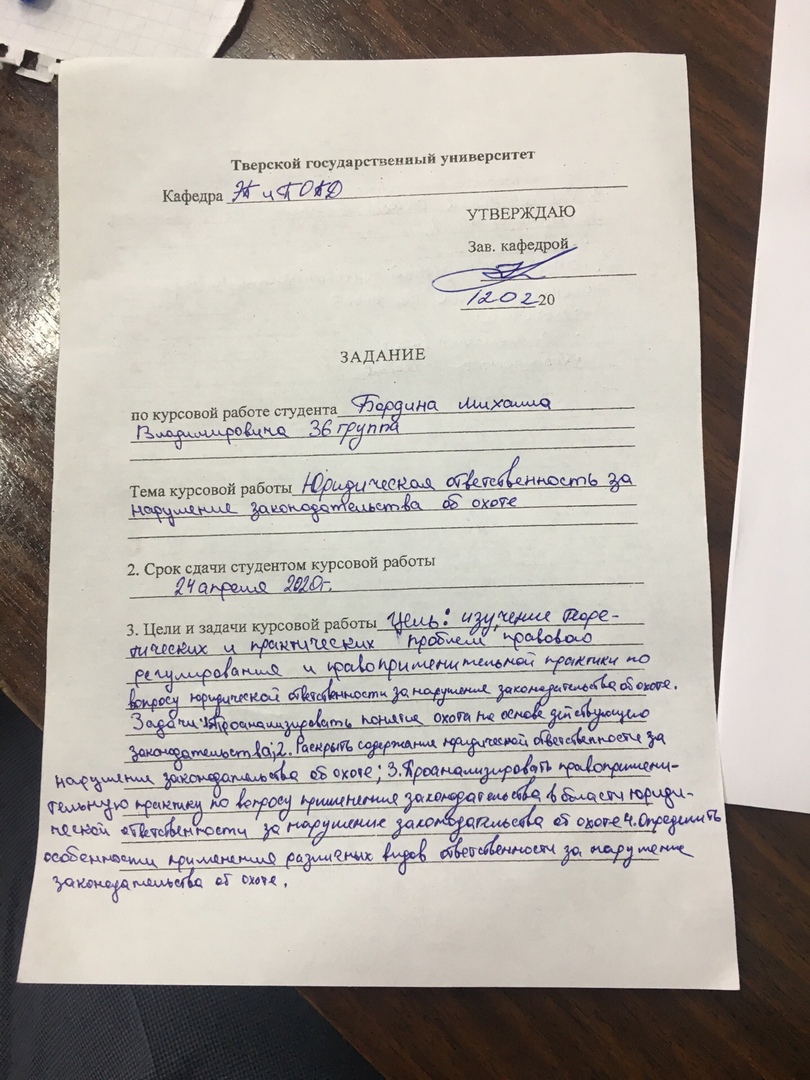 Тверской государственный университет
Кафедра ЭП и ПОАД
УТВЕРЖДАЮ
Зав. кафедрой
12 02 20
ЗАДАНИЕ
по курсовой работе студента Бардина Михаила
Владимировича 36 группа
Тема курсовой работы Юридическая ответственность за
нарушение законодательства об охоте
2. Срок сдачи студентом курсовой работы
24 апреля 2020г.
3. Цели и задачи курсовой работы Цель: изучение теоре-
тических и практических проблем правового
регулирования и правоприменительной практики по
вопросу юридической ответственности за нарушение законодательства об охоте.
Задачи: 1. Проанализировать понятие охота на основе действующего
законодательства; 2. Раскрыть содержание юридической ответственности за
нарушение законодательства об охоте; 3. Проанализировать правопримени-
тельную практику по вопросу применения законодательства в области юриди-
ческой ответственности за нарушение законодательства об охоте 4. Определить
особенности применения различных видов ответственности за нарушение
законодательства об охоте.